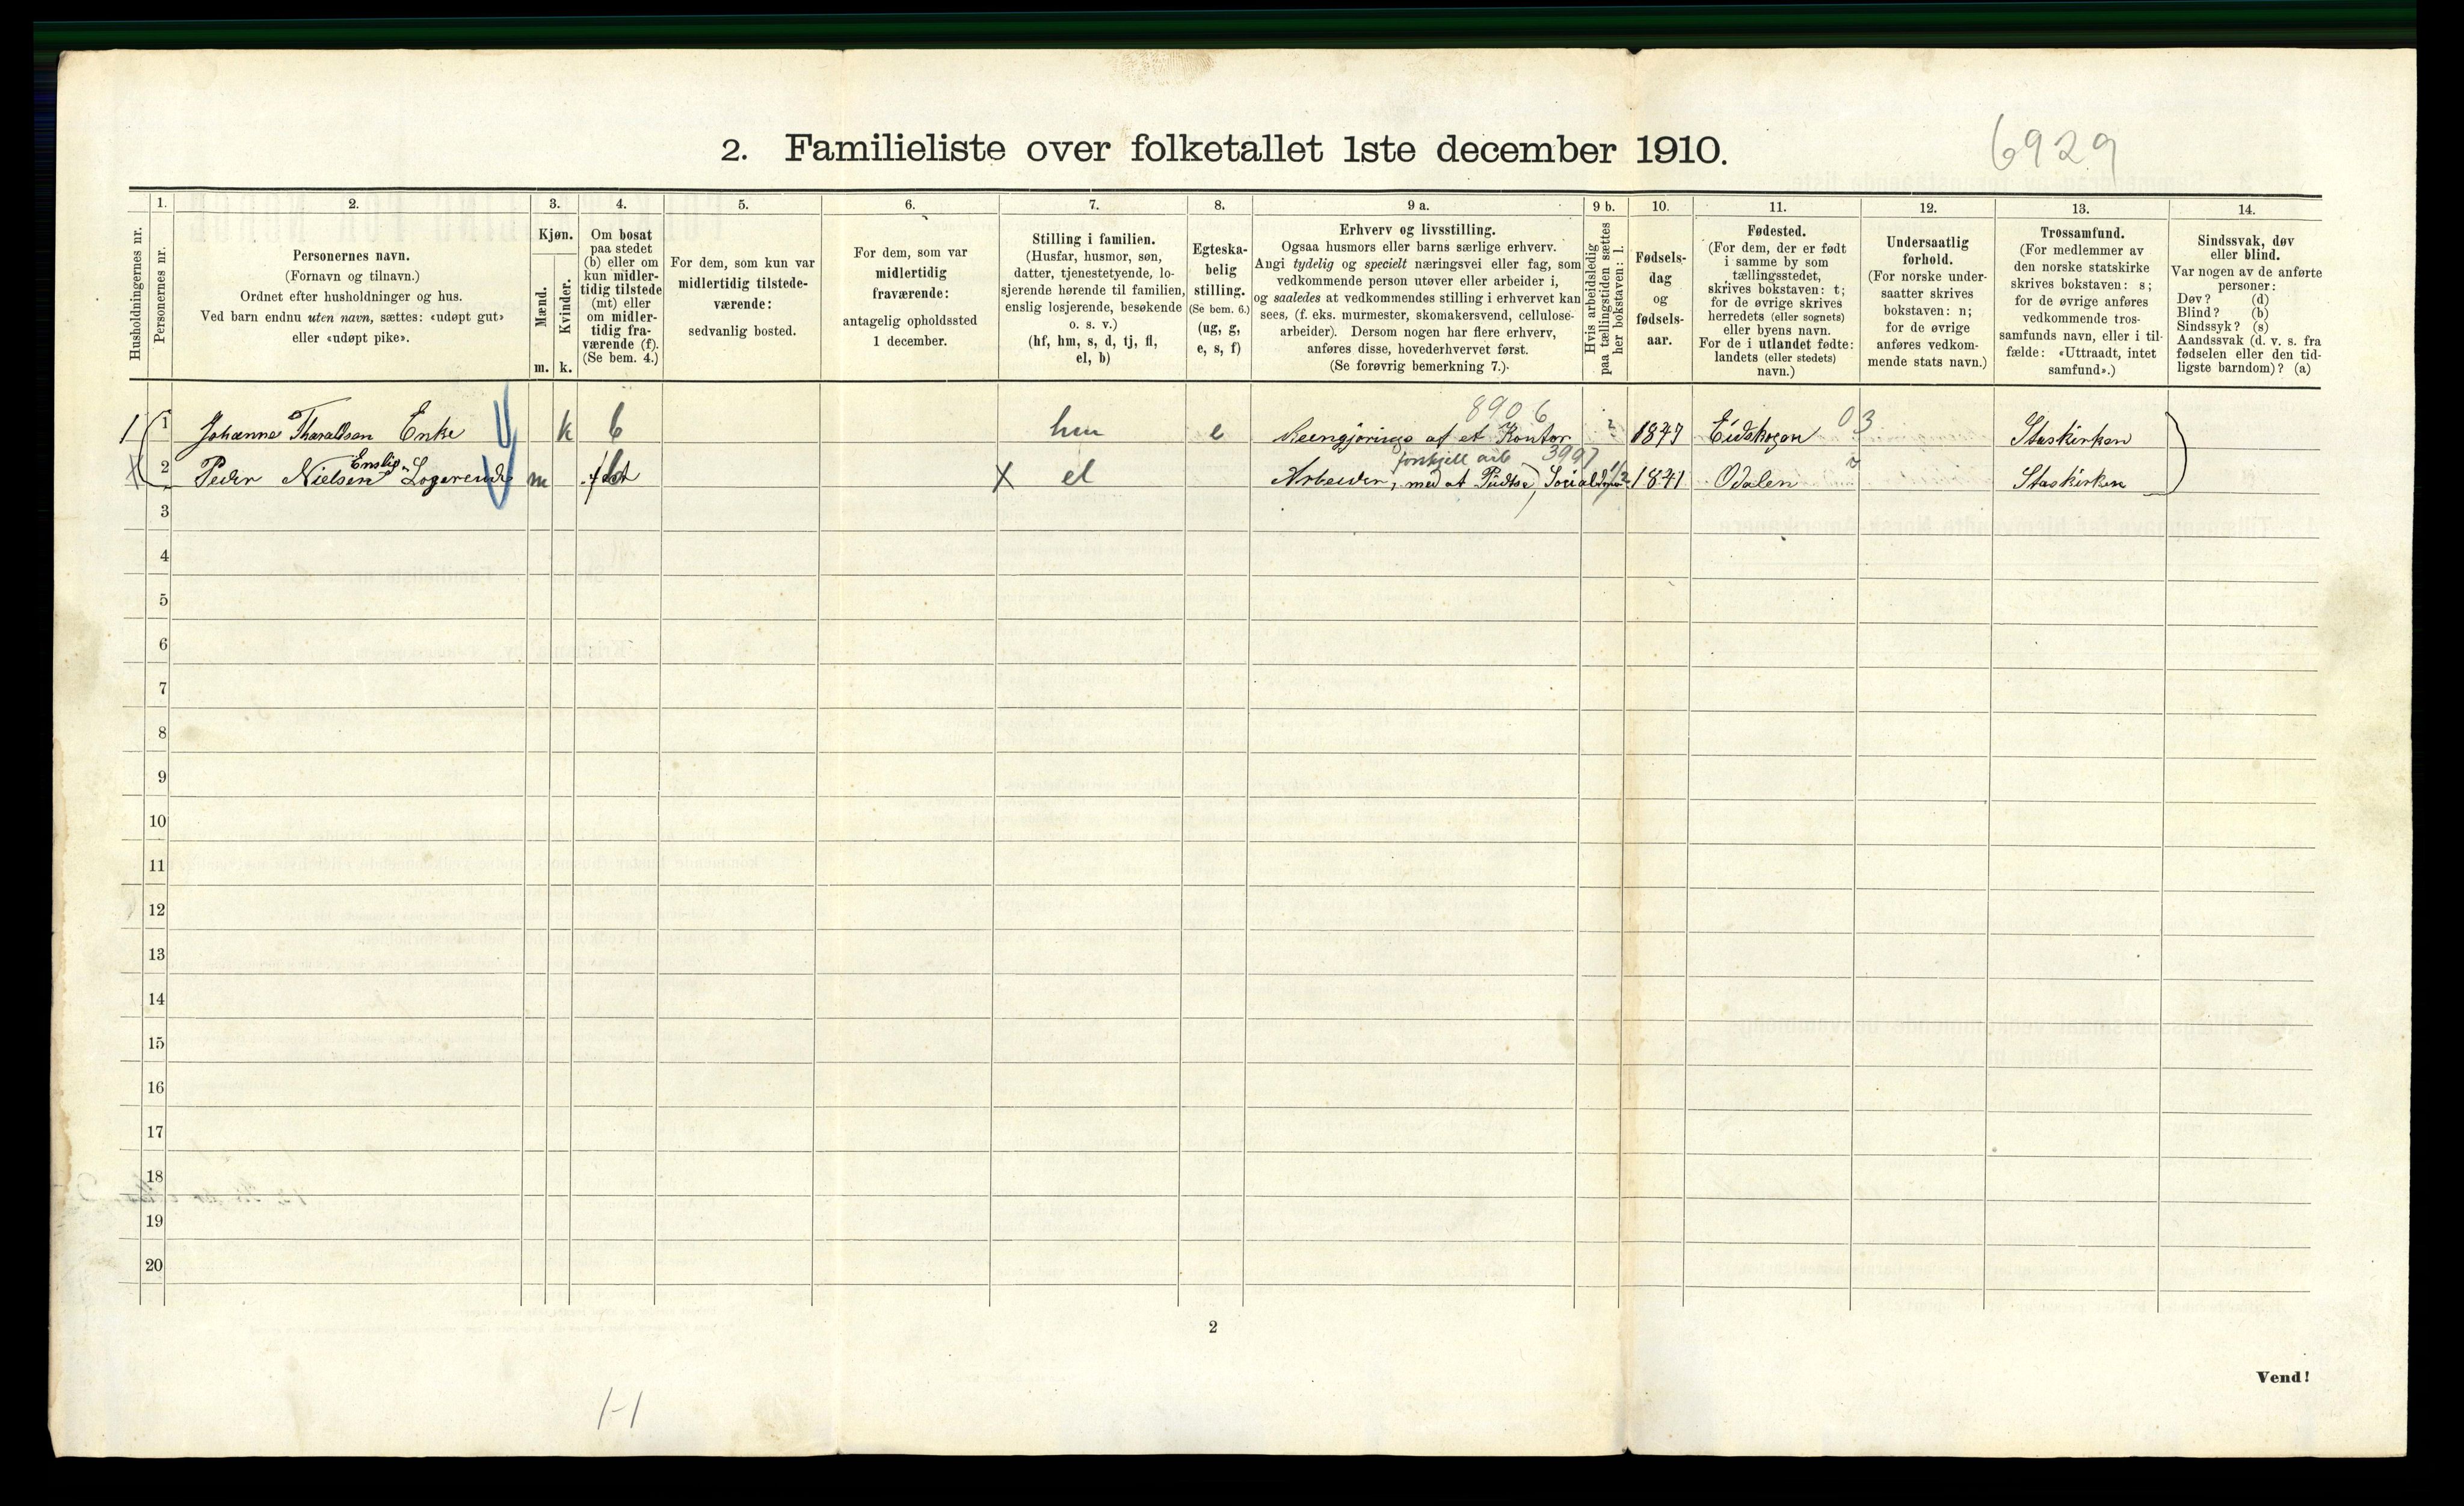 2. Familieliste over folketallet 1ste december 1910.
6929
Husholdningernes nr.
1.
Personernes nr.
2.
Personernes navn.
(Fornavn og tilnavn.)
Ordnet efter husholdninger og hus.
Ved barn endnu uten navn, sættes: «udøpt gut»
eller «udøpt pike».
3.
Kjøn.
Mænd.
Kvinder.
m.
k.
4.
Om bosat
paa stedet
(b) eller om
kun midler-
tidig tilstede
(mt) eller
om midler-
tidig fra-
værende (f).
(Se bem. 4.)
5.
For dem, som kun var
midlertidig tilstede-
værende:
sedvanlig bosted.
6.
For dem, som var
midlertidig
fraværende:
antagelig opholdssted
1 december.
7.
Stilling i familien.
(Husfar, husmor, søn,
datter, tjenestetyende, lo-
sjerende hørende til familien,
enslig losjerende, besøkende
o. s. v.)
(hf, hm, s, d, tj, fl,
el, b)
8.
Egteska-
belig
stilling.
(Se bem. 6.)
(ug, g,
e, s, f)
9 a.
Erhverv og livsstilling.
Ogsaa husmors eller barns særlige erhverv.
Angi tydelig og specielt næringsvei eller fag, som
vedkommende person utøver eller arbeider i,
og saaledes at vedkommendes stilling i erhvervet kan
sees, (f. eks. murmester, skomakersvend, cellulose-
arbeider). Dersom nogen har flere erhverv,
anføres disse, hovederhvervet først.
(Se forøvrig bemerkning 7.)
9 b.
Hvis arbeidsledig
paa tællingstiden sættes
her bokstaven: l.
10.
Fødsels-
dag
og
fødsels-
aar.
11.
Fødested.
(For dem, der er født
i samme by som
tællingsstedet,
skrives bokstaven: t;
for de øvrige skrives
herredets (eller sognets)
eller byens navn.
For de i utlandet fødte:
landets (eller stedets)
navn.)
12.
Undersaatlig
forhold.
(For norske under-
saatter skrives
bokstaven: n;
for de øvrige
anføres vedkom-
mende stats navn.)
13.
Trossamfund.
(For medlemmer av
den norske statskirke
skrives bokstaven: s;
for de øvrige anføres
vedkommende tros-
samfunds navn, eller i til-
fælde: «Uttraadt, intet
samfund».)
14.
Sindssvak, døv
eller blind.
Var nogen av de anførte
personer:
Døv? (d)
Blind? (b)
Sindssyk? (s)
Aandssvak (d. v. s. fra
fødselen eller den tid-
ligste barndom)? (a)
8906
1 1 Johanne Tharaldsen Enke k b hm e Reengjøringe af et Kontor 1847 Eidskogen 03 Staskirken
Enslig forskjell arb 3997
X 2 Peder Nielsen Logerende m X el Arbeider, med at Pudse, 1841 Odalen Staskirken
3
4
5
6
7
8
9
10
11
12
13
14
15
16
17
18
19
20
2
Vend!
H